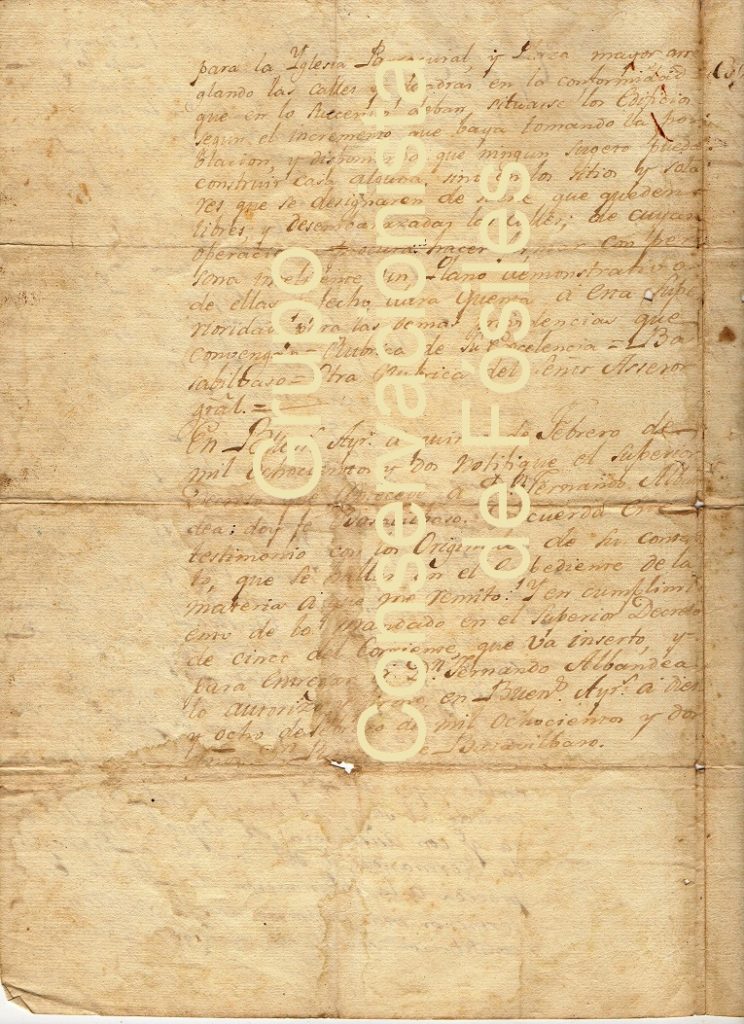 para la Yglesia Parroquial, y Plaza mayor arre
glando las calles y Quadras en la conformidad
que en lo succesivo deban situarse los Edificios
segun el incremento que baya tomando la pov
blacion, y disponiendo que ningun sugeto pueda
construir casa alguna, sino en los sitios y sola
res que se designaren de suerte que queden
libres, y desembarazadas las calles; de cuya
operacion procurará hacer formar con per
sona inteligente un Plano demonstrativo
de ellas, y hecho dara Quenta á esta Supe
rioridad para las demas Providencias que
convengan = Rubrica de Su Excelencia = Ba
sabilbaso = Otra Rubrica del Señor Assesor
gral. =
En Buens. Ayrs. á quince de Febrero de
mil ochocientos y dos notifiqué el Superior
Decreto que antecede á Dn. Fernando Alban
dea: doy fe Basavilbaso. Concuerda este
testimonio con los Originales de su conte
to, que se hallan en el Expediente de la
materia á que me remito: Y en cumplimi
ento de lo mandado en el Superior Decreto
de cinco del Corriente, que va inserto, y
para entregar á Dn. Fernando Albandea
lo autorizo y firmo, en Buens. Ayrs. á diez
y ocho de Febrero de mil ochocientos y dos
Basavilbaso.
Grupo
Conservacionista
de Fósiles